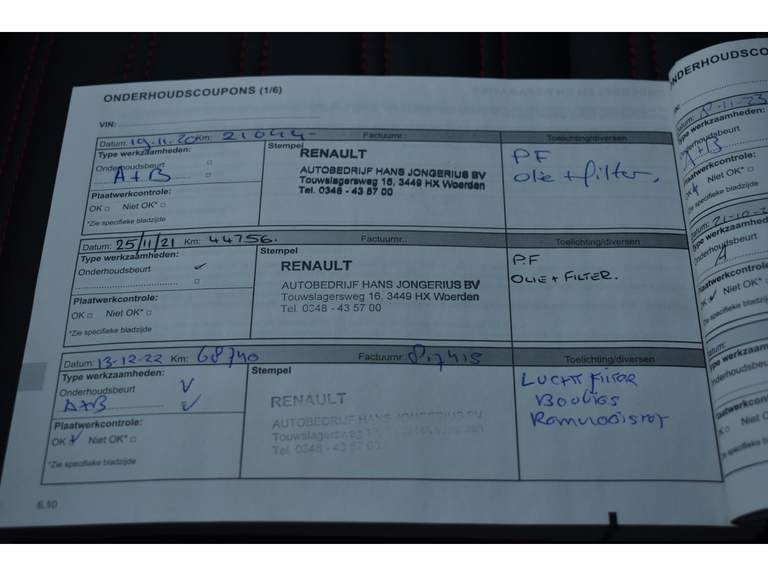 ONDERHOUDSCOUPONS (1/6)
VIN:
Datum: 19.11.20 Km: 21044- Factuurnr.: Toelichting/diversen
Type werkzaamheden:
Onderhoudsbeurt
A+B
Plaatwerkcontrole:
OK Niet OK*
*Zie specifieke bladzijde
Stempel
RENAULT
AUTOBEDRIJF HANS JONGERIUS BV
Touwslagersweg 16, 3449 HX Woerden
Tel. 0348 - 43 57 00
PF
olie + filter.
Datum: 25/11/21 Km: 44756. Factuurnr.: Toelichting/diversen
Type werkzaamheden:
Onderhoudsbeurt ✓
Plaatwerkcontrole:
OK Niet OK*
*Zie specifieke bladzijde
Stempel
RENAULT
AUTOBEDRIJF HANS JONGERIUS BV
Touwslagersweg 16, 3449 HX Woerden
Tel. 0348 - 43 57 00
P.F
OLIE + FILTER.
Datum: 13-12-22 Km: 68740 Factuurnr.: Toelichting/diversen
Type werkzaamheden:
Onderhoudsbeurt ✓
A+B ✓
Plaatwerkcontrole:
OK ✓ Niet OK*
*Zie specifieke bladzijde
Stempel
RENAULT
AUTOBEDRIJF HANS JONGERIUS BV
Touwslagersweg 16, 3449 HX Woerden
Tel. 0348 - 43 57 00
LUCHTFILTER
6.10
ONDERHOUDSCOU
Datum: 8-11-23
Type werkzaamheden:
Onderhoudsbeurt
A+B
Plaatwerkcontrole:
OK Niet OK*
*Zie specifieke bladzijde
Onderhoudsbeurt
A
Plaatwerkcontrole:
OK Niet OK*
*Zie specifieke bladzijde